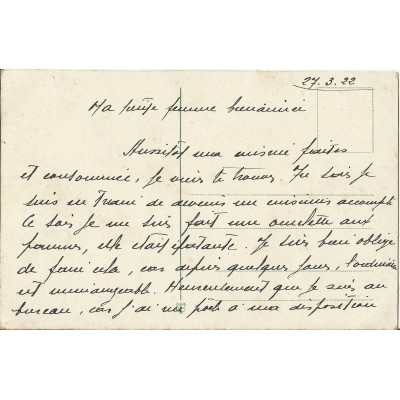 27.3.22
Ma petite femme bien aimée
Aussitôt ma cuisine faite
et consommée, je viens te trouver. Tu sais je
suis en train de devenir un cuisinier accompli
Ce soir je me suis fait une omelette aux
pommes, elle était épatante. Je suis bien obligé
de faire cela, car depuis quelques jours, l'ordinaire
est immangeable. Heureusement que je suis au
bureau, car j'ai un poêle à ma disposition